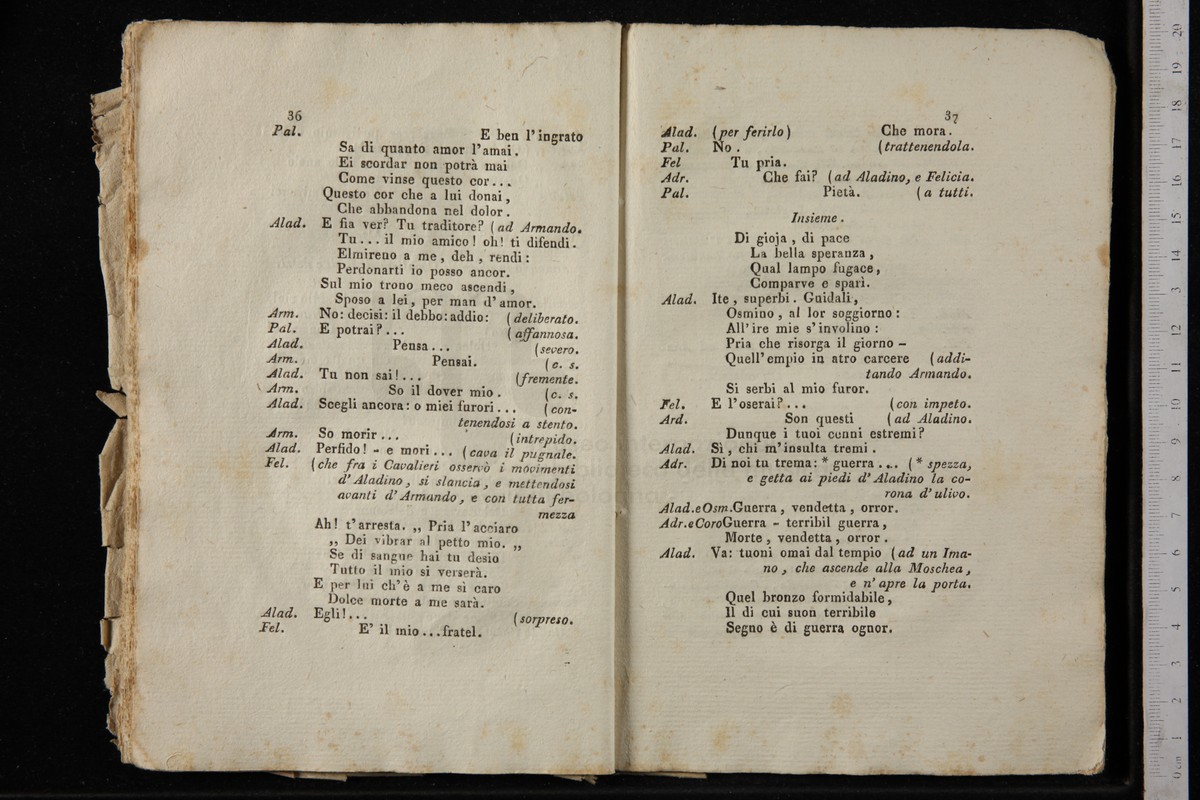 36
Pal. E ben l'ingrato
Sa di quanto amor l'amai.
Ei scordar non potrà mai
Come vinse questo cor...
Questo cor che a lui donai,
Che abbandona nel dolor.
Alad. E fia ver? Tu traditore? (ad Armando.
Tu... il mio amico! oh! ti difendi.
Elmireno a me, deh, rendi:
Perdonarti io posso ancor.
Sul mio trono meco ascendi,
Sposo a lei, per man d'amor.
Arm. No: decisi: il debbo: addio: (deliberato.
Pal. E potrai?... (affannosa.
Alad. Pensa... (severo.
Arm. Pensai. (c. s.
Alad. Tu non sai!... (fremente.
Arm. So il dover mio. (c. s.
Alad. Scegli ancora: o miei furori... (con-
tenendosi a stento.
Arm. So morir... (intrepido.
Alad. Perfido! - e mori... (cava il pugnale.
Fel. (che fra i Cavalieri osservò i movimenti
d'Aladino, si slancia, e mettendosi
avanti d'Armando, e con tutta fer-
mezza
Ah! t'arresta. ,, Pria l'acciaro
,, Dei vibrar al petto mio. ,,
Se di sangue hai tu desio
Tutto il mio si verserà.
E per lui ch'è a me sì caro
Dolce morte a me sarà.
Alad. Egli!... (sorpreso.
Fel. E' il mio...fratel.
37
Alad. (per ferirlo) Che mora.
Pal. No. (trattenendola.
Fel Tu pria.
Adr. Che fai? (ad Aladino, e Felicia.
Pal. Pietà. (a tutti.
Insieme.
Di gioja, di pace
La bella speranza,
Qual lampo fugace,
Comparve e sparì.
Alad. Ite, superbi. Guidali,
Osmino, al lor soggiorno:
All'ire mie s'involino:
Pria che risorga il giorno -
Quell'empio in atro carcere (addi-
tando Armando.
Si serbi al mio furor.
Fel. E l'oserai?... (con impeto.
Ard. Son questi (ad Aladino.
Dunque i tuoi cenni estremi?
Alad. Sì, chi m'insulta tremi.
Adr. Di noi tu trema: * guerra... (* spezza,
e getta ai piedi d'Aladino la co-
rona d'ulivo.
Alad.eOsm.Guerra, vendetta, orror.
Adr.eCoroGuerra - terribil guerra,
Morte, vendetta, orror.
Alad. Va: tuoni omai dal tempio (ad un Ima-
no, che ascende alla Moschea,
e n'apre la porta.
Quel bronzo formidabile,
Il di cui suon terribile
Segno è di guerra ognor.